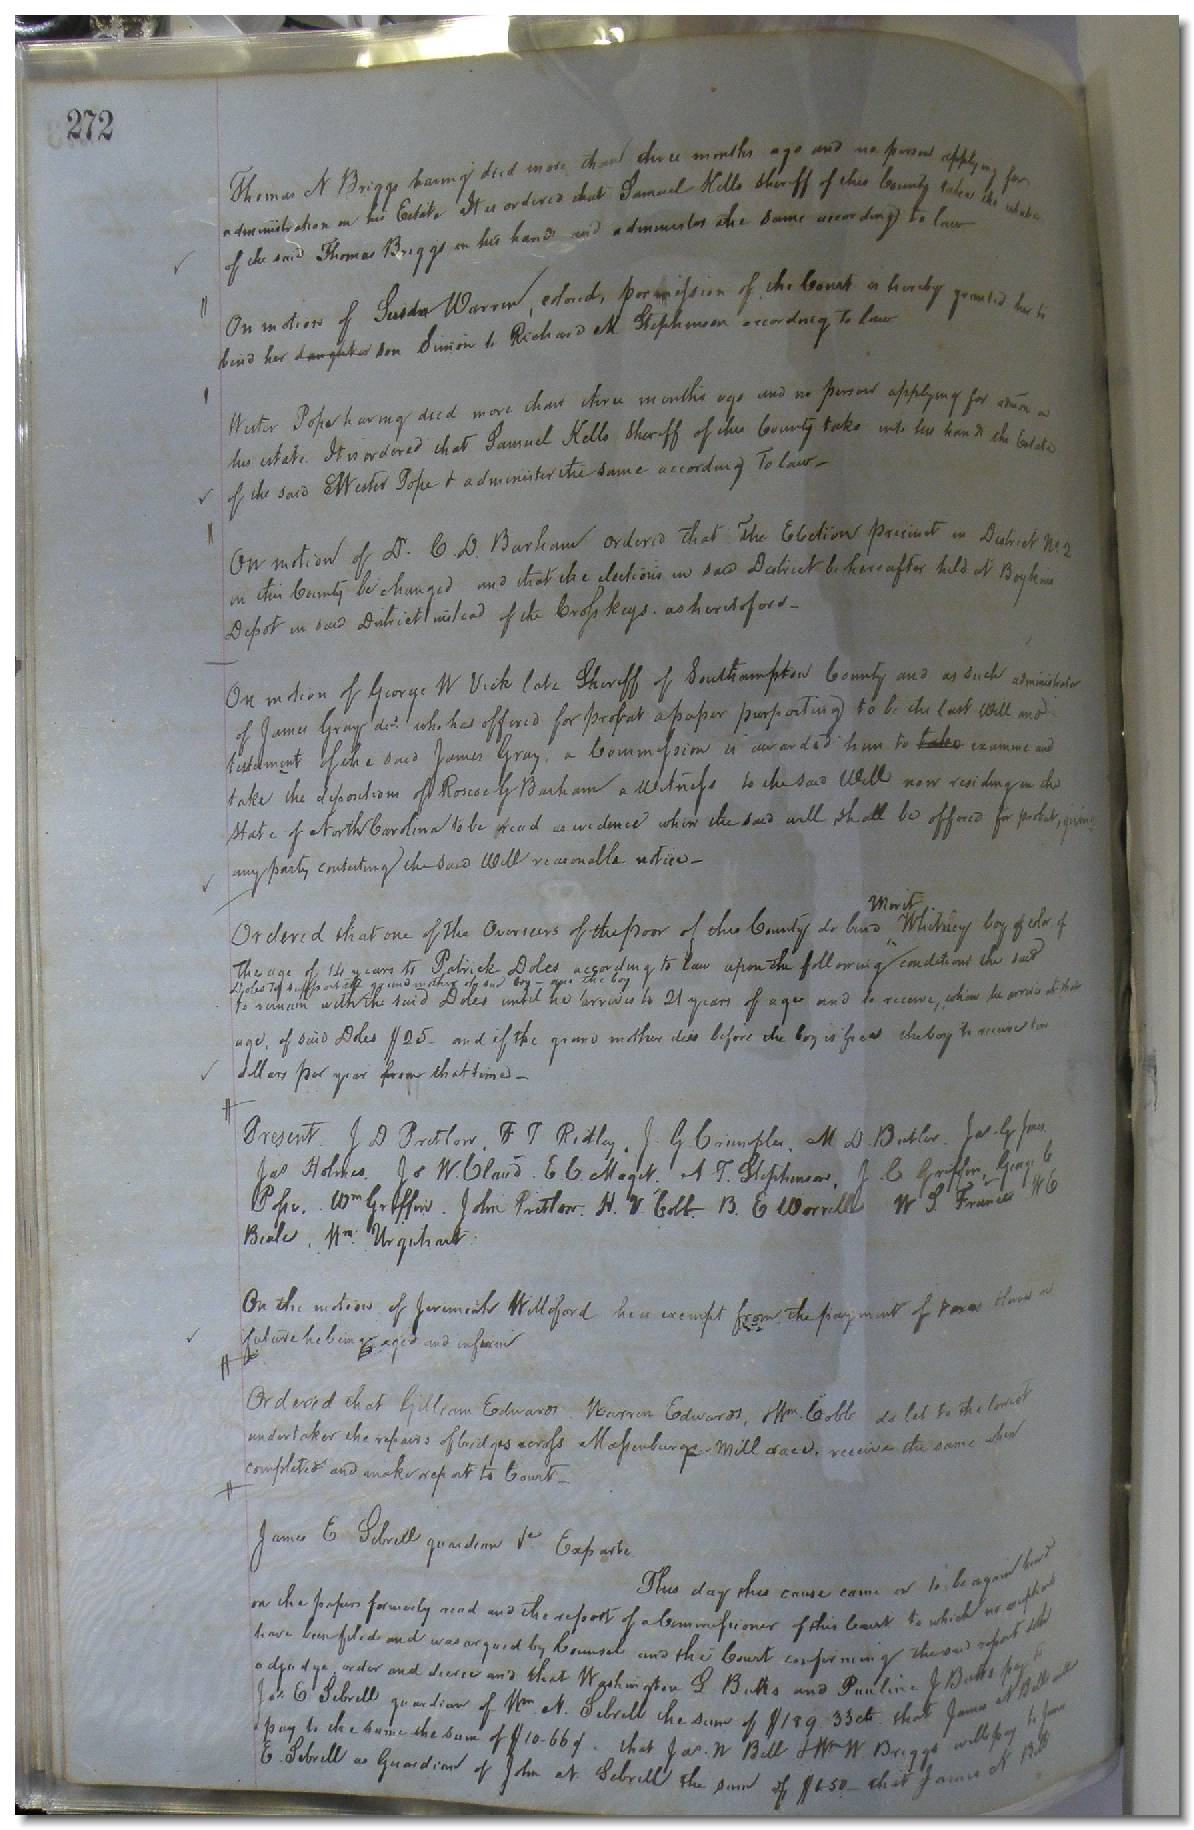 272
Thomas N Briggs having died more than three months ago and no person applying for
administration on his Estate It is ordered that Samuel Kello Sheriff of this County take the estate
of the said Thomas Briggs in his hands and administer the same according to law
On motion of Susan Warren, colored, permission of the Court is hereby granted her to
bind her daughter son Simon to Richard M Stephenson according to law
Wester Pope having died more than three months ago and no person applying for admon on
his estate. It is ordered that Samuel Kello Sheriff of this County take into his hands the Estate
of the said Wester Pope & administer the same according to law-
On motion of Dr. C. D Barham ordered that The Election precinct in District No. 2
in this County be changed and that the elections in said District be hereafter held at Boykins
Depot in said District instead of the Cross keys. as heretofore-
On motion of George W Vick late Sheriff of Southampton County and as such administrator
of James Gray decd. who has offered for probat a paper purporting to be the last Will and
testament of the said James Gray, a Commission is awarded him to take examine and
take the deposition of Barham a Witness to the said Will now residing in the
State of North Carolina to be read as evidence when the said will shall be offered for probat, giving
any party contesting the said Will reasonable notice-
Merit
Ordered that one of the Overseers of the poor of this County do bind Whitney boy of color of
the age of 14 years to Patrick Doles according to law upon the following conditions the said
Doles to support the grandmother of said boy - and the boy
to remain with the said Doles until he arrives to 21 years of age and to receive, when he arrives at that
age, of said Doles $25- and if the grand mother dies before the boy is free the boy to receive ten
dollars per year from that time-
Present. J D Pretlow, F T Ridley, J. G Crumpler, M D. Butler. Jas. G Jones,
Jas Holmes, Js W. Claud. E. C. Magett. A T. Stephenson, J. C Griffin, George C
Pope. Wm Griffin. John Pretlow. H. V. Cobb. B. E Worrell W S. Francis W C
Beale, Wm. Urquhart.
On the motion of Jeremiah Williford he is exempt from the payment of in
future he being aged and infirm
Ordered that Gilliam Edwards Warren Edwards, & Wm. Cobb do let to the lowest
undertaker the repairs of bridges across Massenburgs Mill race, receive the same when
completed and make report to Court-
James E Sebrell guardian &c Exparte
This day this cause came on to be again heard
on the papers formerly read and the report of a Commissioner of this Court to which no exceptions
have been filed and was argued by Counsel and the Court confirming the said report doth
adjudge order and decree and that Washington L Butts and Pauline J Butts pay to
Jas. E Sebrell guardian of Wm N. Sebrell the sum of $189.33cts. that James N Bell
pay to the same the sum of $10-66¢. that Jas. N Bell & Wm W Briggs will pay to James
E. Sebrell as Guardian of John N. Sebrell the sum of $6.50- that James N Bell